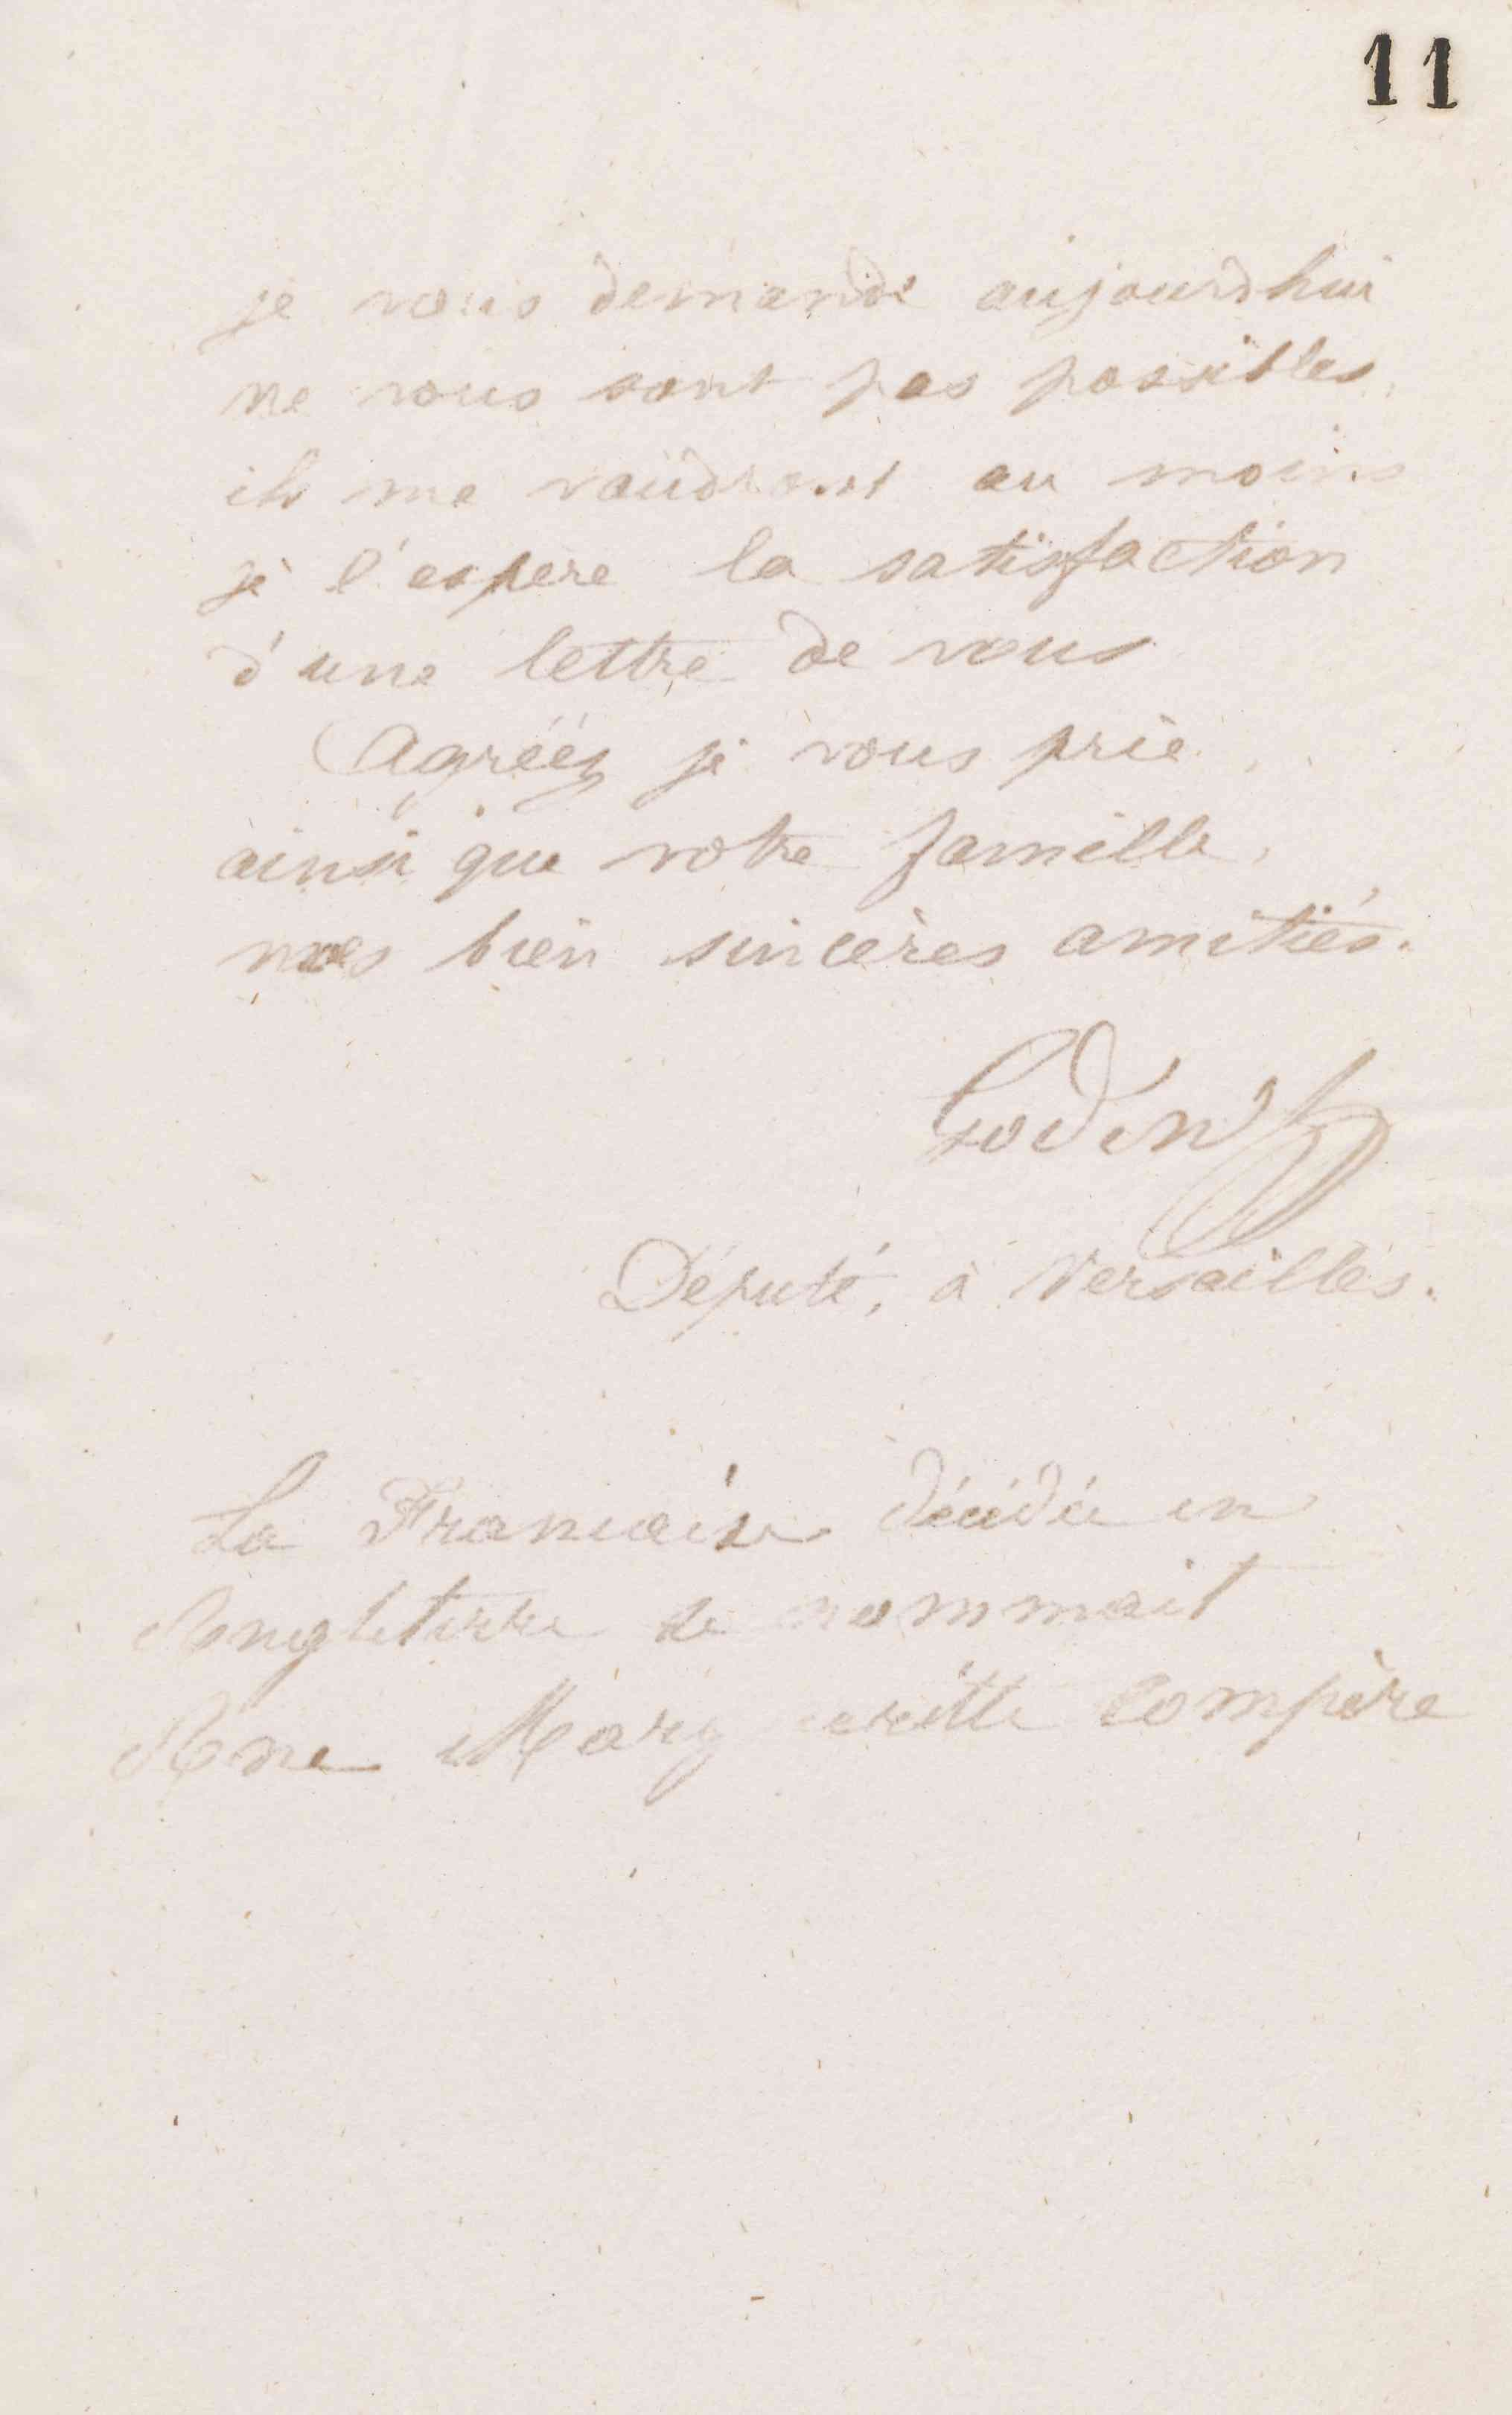 11
je vous demande aujourdhui
ne vous sont pas possibles,
ils me vaudront au moins
je l'espere la satisfaction
d'une lettre de vous
Agréez je vous prie,
ainsi que votre famille,
mes bien sincères amitiés.
Godin
Député, à Versailles.
La Francaise décédée en
Angleterre se nommait
Ane Marguerite Compère